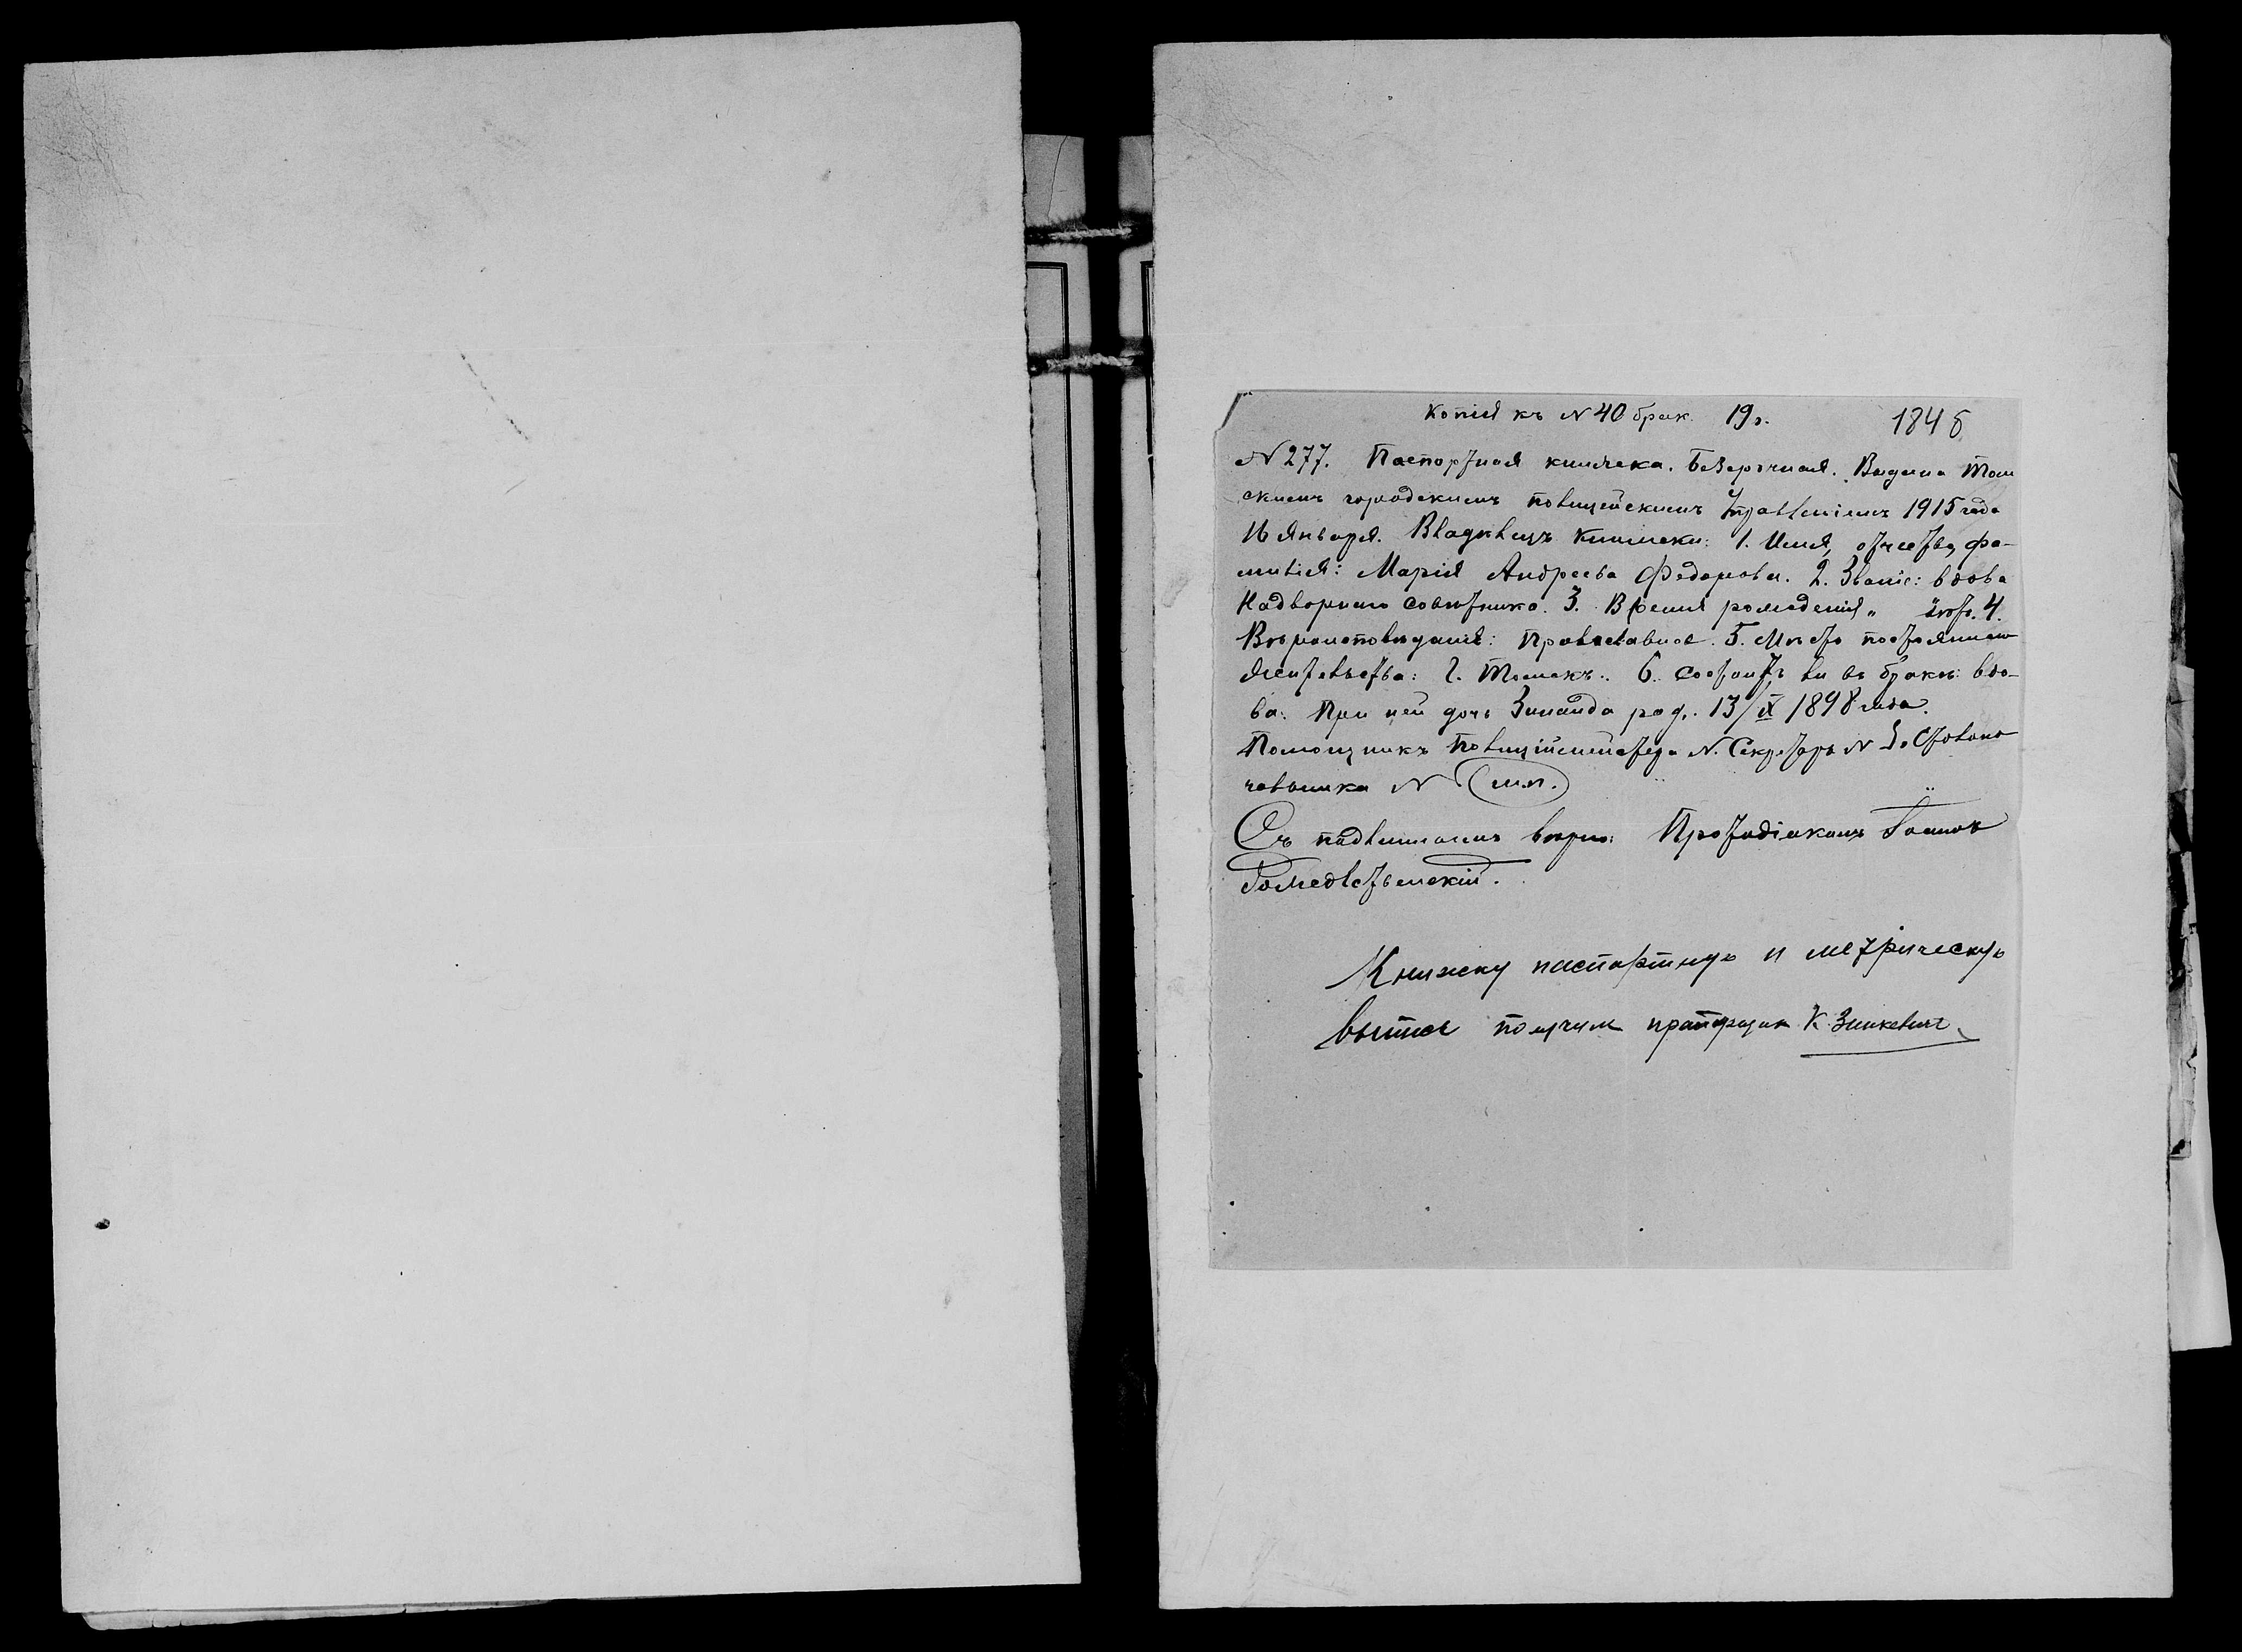 Копія къ № 40 брак. 19 г. 1848
№ 277. Паспортная книжека. Безсрочная. Выдана Том
скимъ городскимъ полицейскимъ Управленіемъ 1915 года
16 Января. Владѣлецъ книжеки: 1. Имя, отчество, фа-
милія: Марія Андреева Федорова. 2. Званіе: вдова
Надворнаго совѣтника. 3. Время рожденія „ лѣтъ. 4.
Вѣроисповѣданіе: Православное. 5. Мѣсто постояннаго
жительства: г. Томскъ. 6. Состоитъ ли въ бракѣ: вдо-
ва. При ней дочь Зинаида род. 13/IX 1898 года.
Помощникъ Полиціймейстера N. Секретарь N За Столона-
чальника N (м.п.)
Съ подлиннымъ вѣрно: Протодіаконъ Іоаннъ
Рождественскій.
Книжку паспортную и метрическую
выпись получил прапорщик К. Зинкевич